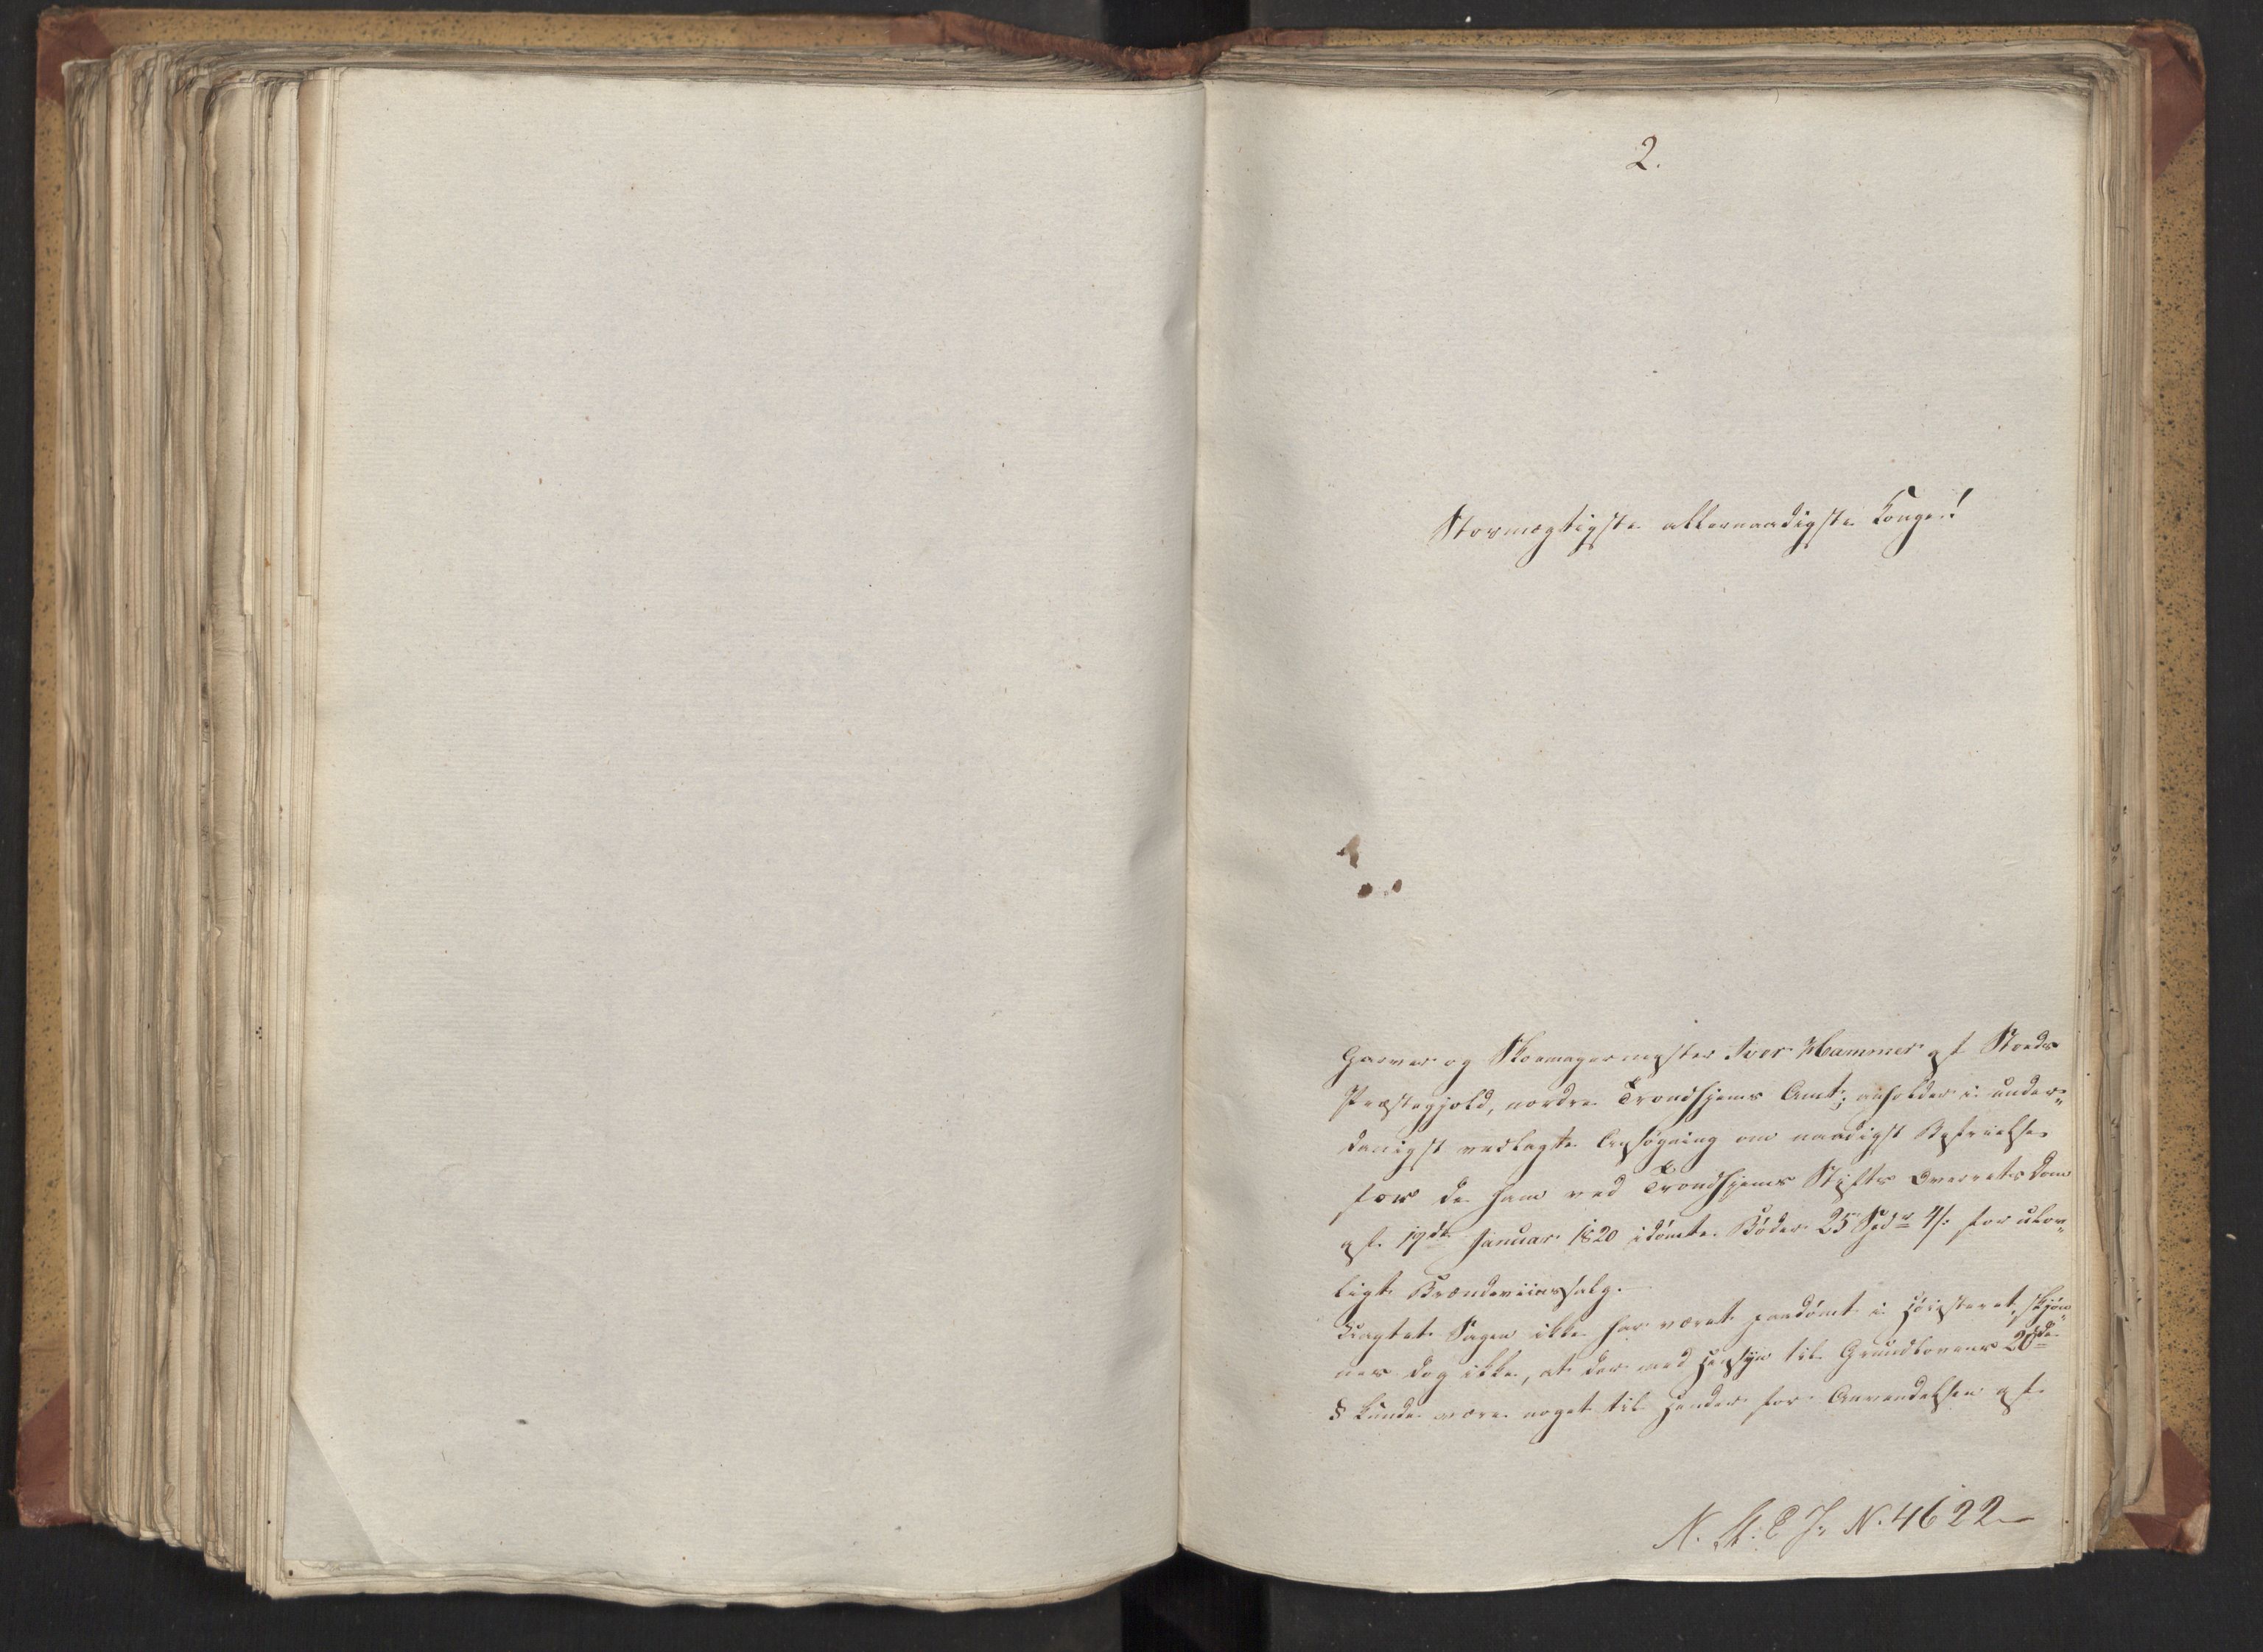 2.
Stormægtigste allernaadigste Konge!
Garver og Skoemagermester Iver Hammer af Stods
Præstegjeld, nordre Trondhjems Amt, anholder i under„
danigst vedlagte Ansøgning om naadigst Befrielse
for de ham ved Trondhjems Stifts Overrets Dom
af 19de Januar 1820 idømte Bøder 25 Spdr 4/: for ulov„
ligt Brændeviinssalg.
Uagtet Sagen ikke har været paadømt i Høiesteret, skjøn„
nes dog ikke, at der med Hensyn til Grundlovens 20de
§ kunde være noget til Hinder for Anvendelsen af
N. St. E J. N. 4622